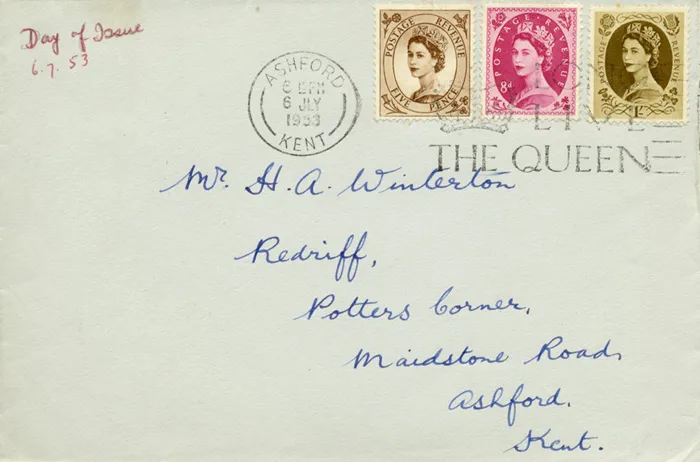 Day of Issue
6.7.53
POSTAGE REVENUE
FIVE PENCE
POSTAGE REVENUE
8d
POSTAGE REVENUE
1/-
ASHFORD
6 JLY
1953
KENT
LIVE
THE QUEEN
Mr. H. A. Winterton
Redriff,
Potters Corner,
Maidstone Road,
Ashford.
Kent.